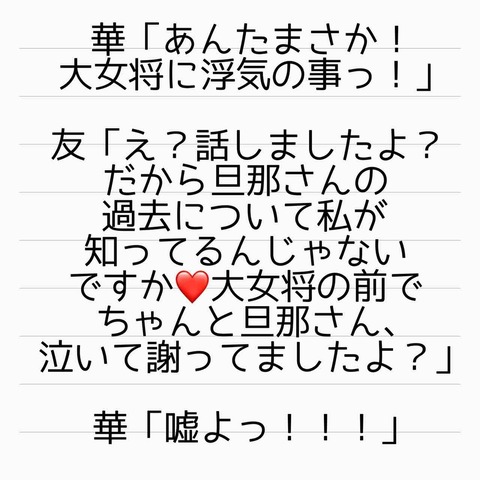 華「あんたまさか！
大女将に浮気の事っ！」
友「え？話しましたよ？
だから旦那さんの
過去について私が
知ってるんじゃない
ですか❤️大女将の前で
ちゃんと旦那さん、
泣いて謝ってましたよ？」
華「嘘よっ！！！」